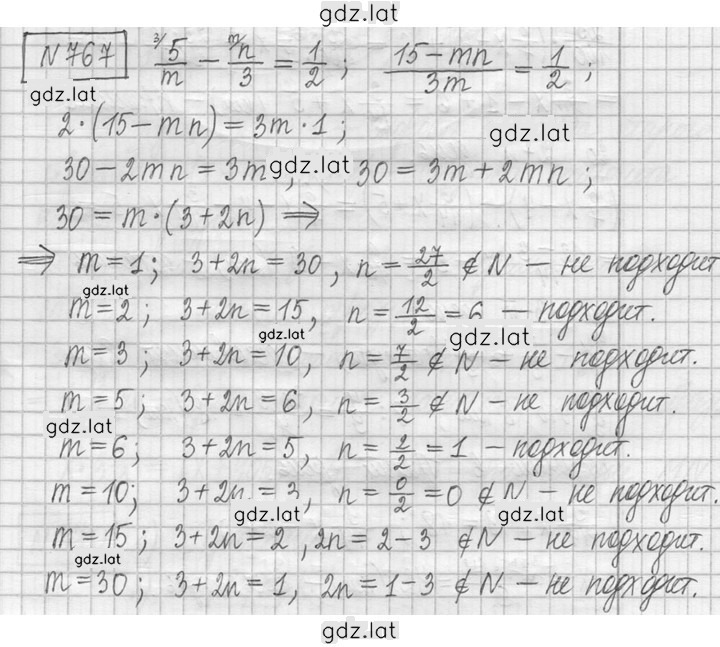 gdz.lat
N 767 ³⁾5/m − ᵐ⁾n/3 = 1/2 ; (15−mn)/3m = 1/2 ;
gdz.lat
2·(15−mn) = 3m·1 ; gdz.lat
30−2mn = 3m, gdz.lat 30 = 3m+2mn ;
30 = m·(3+2n) ⇒
⇒ m=1; 3+2n=30, n=27/2 ∉ N − не подходит
gdz.lat
m=2; 3+2n=15, n=12/2=6 − подходит.
gdz.lat gdz.lat
m=3; 3+2n=10, n=7/2 ∉ N − не подходит.
m=5; 3+2n=6, n=3/2 ∉ N − не подходит.
gdz.lat
m=6; 3+2n=5, n=2/2=1 − подходит.
m=10; 3+2n=3, n=0/2=0 ∉ N − не подходит.
gdz.lat gdz.lat
m=15; 3+2n=2, 2n=2−3 ∉ N − не подходит.
gdz.lat
m=30; 3+2n=1, 2n=1−3 ∉ N − не подходит.
gdz.lat